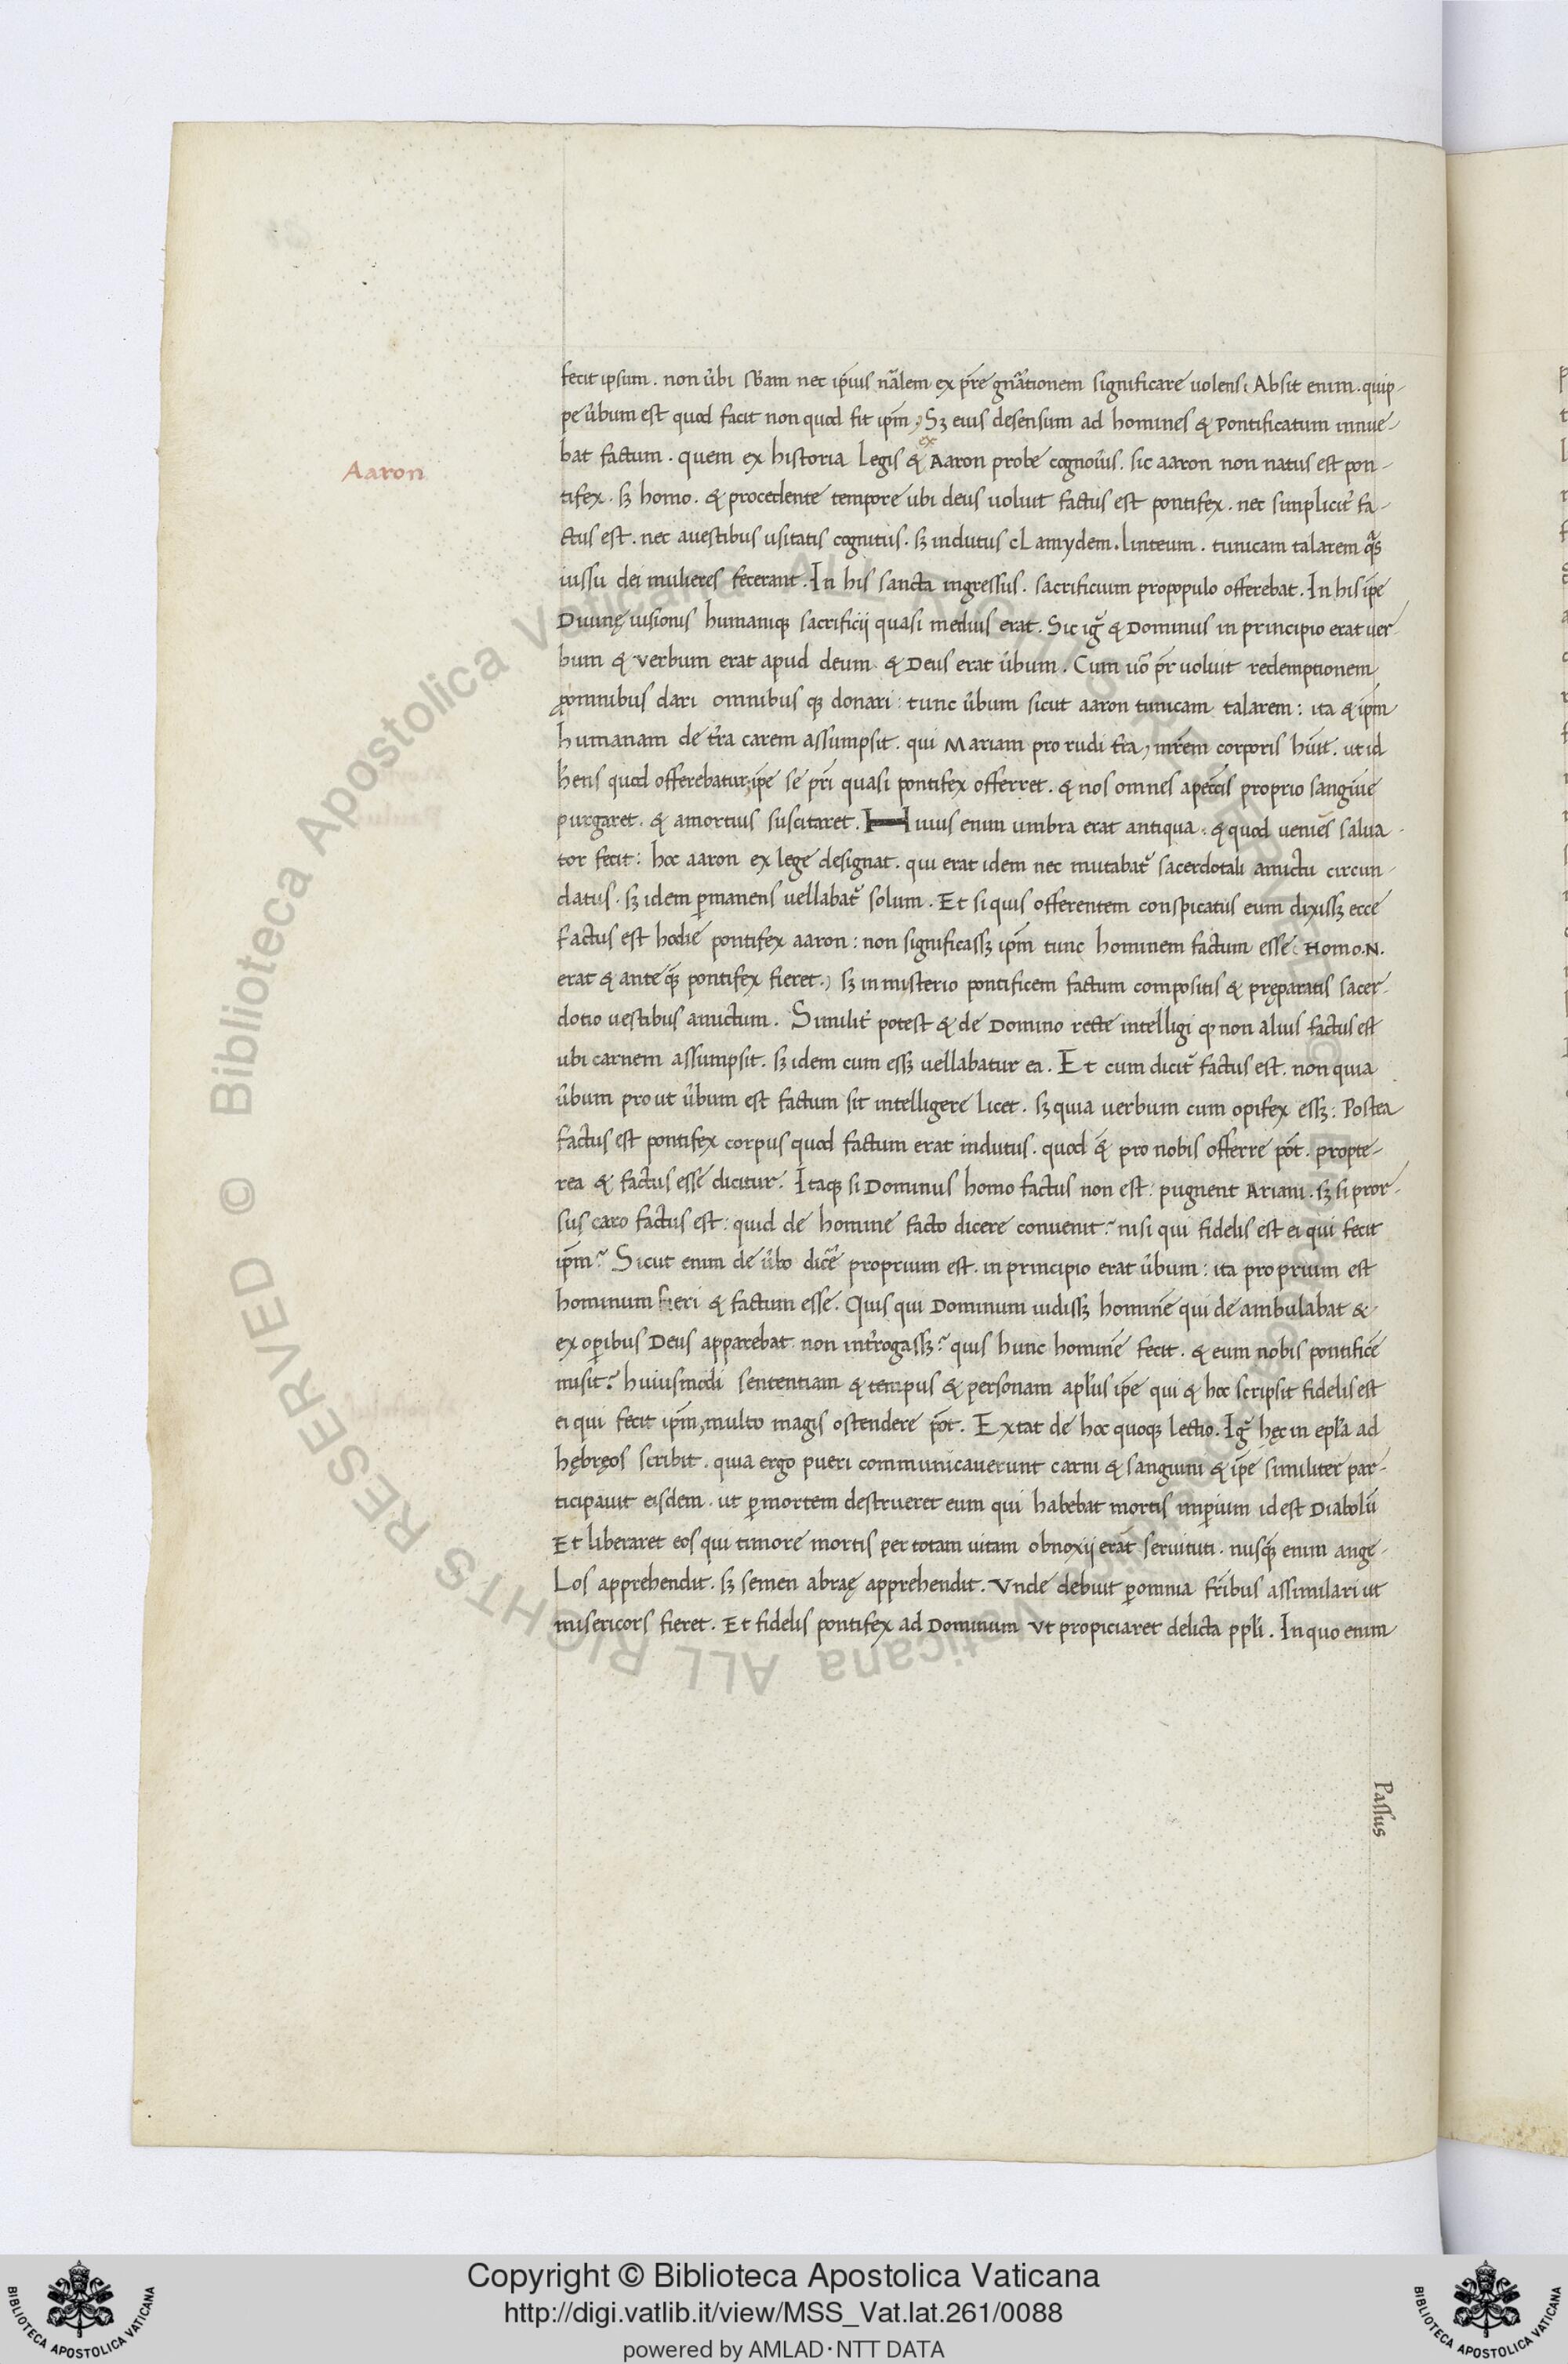 Aaron
fecit ipsum . non ūbi sb̄am nec ip̄ius nālem ex p̄re gn̄ationem significare uolens ( Absit enim . quip-
pe ūbum est quod facit non quod fit ip̄m ) Sꝫ eius desensum ad homines & Pontificatum innue-
ex
bat factum . quem ex historia Legis & Aaron probe cognoīus . sic aaron non natus est pon-
tifex . sꝫ homo . & procedente tempore ubi deus uoluit factus est pontifex . nec simplicit̄ fa-
ctus est . nec auestibus usitatis cognitus . sꝫ indutus cLamydem . linteum . tunicam talarem q̄s
iussu dei mulieres fecerant . In his sancta ingressus . sacrificium propopulo offerebat . In his ip̄e
Diuinę uisionis humaniqꝫ sacrificij quasi medius erat . Sic ig̃ & Dominus in principio erat uer-
bum & Verbum erat apud deum & Deus erat ūbum . Cum uō pr̄ uoluit redemptionem
ꝓomnibus dari omnibus qꝫ donari : tunc ūbum sicut aaron tunicam talarem : ita & ip̄m
humanam de t̄ra carem assumpsit . qui Mariam pro rudi t̄ra , mr̄em corporis hūit . ut id
hēns quod offerebatur ip̄e se pr̄i quasi pontifex offerret . & nos omnes apecc̄is proprio sanguīe
purgaret . & amortuis suscitaret . Huius enim umbra erat antiqua . & quod ueniēs salua-
tor fecit : hoc aaron ex lege designat . qui erat idem nec mutabat̃ sacerdotali amictu circun-
datus . sꝫ idem ꝑmanens uellabat̃ solum . Et si quis offerentem conspicatus eum dixissꝫ ecce
factus est hodie pontifex aaron : non significassꝫ ip̄m tunc hominem factum esse ( Homo .N.
erat & ante q̄ꝫ pontifex fieret . ) sꝫ in misterio pontificem factum compositis & pręparatis sacer-
dotio uestibus amictum . Similit̄ potest & de Domino recte intelligi qꝫ non alius factus est
ubi carnem assumpsit . sꝫ idem cum essꝫ uellabatur ea . Et cum dicit̃ factus est . non quia
ūbum prout ūbum est factum sit intelligere licet . sꝫ quia uerbum cum opifex essꝫ : Postea
factus est pontifex corpus quod factum erat indutus . quod & pro nobis offerre pōt . propte-
rea & factus esse dicitur . Itaqꝫ si Dominus homo factus non est : pugnent Ariani . sꝫ si pror-
sus caro factus est : quid de homine facto dicere conuenit ? nisi qui fidelis est ei qui fecit
ip̄m ? Sicut enim de ūbo dicēr proprium est . in principio erat ūbum : ita proprium est
hominum fieri & factum esse . Quis qui Dominum uidissꝫ hominē qui de ambulabat &
ex oꝑibus Deus apparebat non int̄rogassꝫ ? quis hunc hominē fecit . & eum nobis pontificē
misit ? huiusmodi sententiam & tempus & personam apl̄us ip̄e qui & hoc scripsit fidelis est
ei qui fecit ip̄m , multo magis ostendere pōt . Extat de hoc quoqꝫ lectio . Ig̃ hęc in epl̄a ad
hębręos scribit . quia ergo pueri communicauerunt carni & sanguini & ip̄e similiter par-
ticipauit eisdem . ut ꝑ mortem destrueret eum qui habebat mortis imꝑium id est Diabolū
Et liberaret eos qui timore mortis per totam uitam obnoxij erāt seruituti . nusq̄ꝫ enim ange-
Los apprehendit . sꝫ semen abraę apprehendit . Vnde debuit ꝑomnia fr̄ibus assimilari ut
misericors fieret . Et fidelis pontifex ad Dominum Vt propiciaret delicta ppl̄i . In quo enim
Passus
© Biblioteca Apostolica Vaticana ALL RIGHTS RESERVED
Copyright © Biblioteca Apostolica Vaticana
http://digi.vatlib.it/view/MSS_Vat.lat.261/0088
powered by AMLAD·NTT DATA
BIBLIOTECA APOSTOLICA VATICANA
BIBLIOTECA APOSTOLICA VATICANA